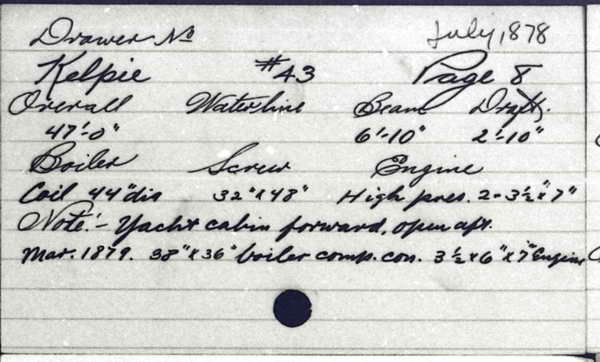 Drawer No July, 1878
Kelpie #43 Page 8
Overall Waterline Beam Draft.
47'-0" 6'-10" 2'-10"
Boiler Screw Engine
Coil 44" dia 32" x 48" High pres. 2-3½" x 7"
Note:- Yacht cabin forward, open aft.
Mar. 1879. 38" x 36" boiler comp. con. 3½ x 6" x 7" Engine